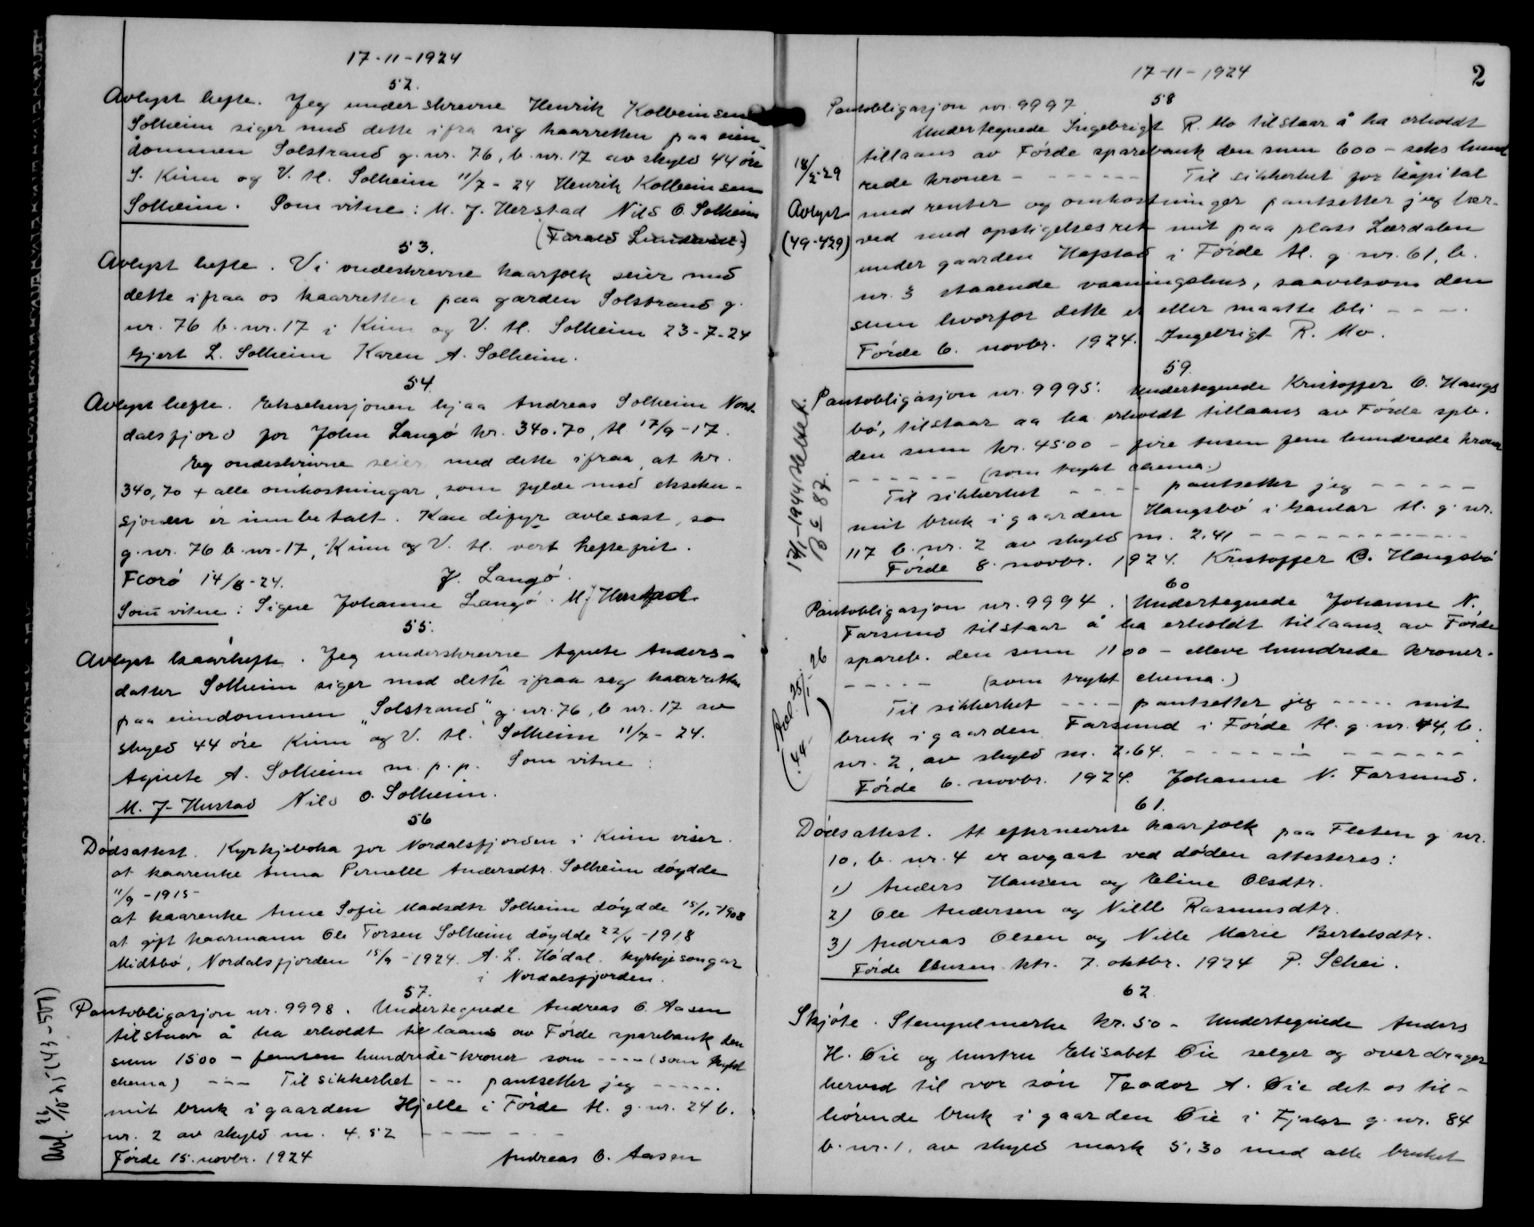 17-11-1924
52.
Avlyst hefte. Jeg underskrevne Henrik Kolbeinsen
Solheim siger med dette ifra sig kaarretten paa eien-
dommen Solstrand g.nr. 76, b.nr. 17 av skyld 44 öre
S. Kinn og V. H. Solheim 11/7-24 Henrik Kolbeinsen
Solheim. Som vitne: M. J. Herstad Nils O. Solheim
53.
Avlyst hefte. Vi undeskrevne kaarfolk seier med
dette ifraa os kaarretten paa garden Solstrand g.
nr. 76 b.nr. 17 i Kinn og V. H. Solheim 23-7-24
Gjert L. Solheim Karen A. Solheim.
54.
Avlyst hefte. Eksekusjonen hjaa Andreas Solheim Nord-
dalsfjord for John Langö kr. 340.70, H 17/9-17.
Eg undeskrivne seier med dette ifraa at kr.
340,70 + alle omkostningar, som fylde med ekseku-
sjonen er innbetalt. Kan difyr avlesast, so
g.nr. 76 b.nr. 17, Kinn og V. H. vert heftefrit.
Florö 14/8-24. J. Langö.
Som vitne: Signe Johanne Langö. M J Herstad
55.
Avlyst kaarhefte. Jeg underskrevne Agnete Anders-
datter Solheim siger med dette ifraa seg kaarretten
paa eiendommen "Solstrand" g.nr. 76, b nr. 17 av
skyld 44 öre Kinn og V. H. Solheim 11/7-24.
Agnete A. Solheim m.p.p. Som vitne:
M. J. Herstad Nils O. Solheim.
56
Dödsattest. Kyrkjeboka for Nordalsfjorden i Kinn viser
at kaarenke Anna Pernelle Andersdtr. Solheim döydde
11/9-1915-
at kaarenke Anne Sofie Madsdtr Solheim döydde 15/11-1908
at gift kaarmann Ole Torsen Solheim döydde 22/4-1918
Midtbö, Nordalsfjorden 15/9-1924. A. L. Hödal. kyrkjesongar
i Nordalsfjorden.
57.
Pantobligasjon nr. 9998. Undertegnede Andreas O. Aasen
tilstaar å ha erholdt tillaans av Förde sparebank den
sum 1500 - femten hundrede-kroner som ---- (som trykt
chema) --- Til sikkerhet --- pantsetter jeg ------
mit bruk i gaarden Hjelle i Förde H. g.nr. 24 b.
nr. 2 av skyld m. 4.52 - - - - -
Förde 15. novbr. 1924 Andreas O. Aasen
17-11-1924
2
58
Pantobligasjon nr. 9997
Undertegnede Ingebrigt R. Mo tilstaar å ha erholdt
tillaans av Förde sparebank den sum 600 - seks hund
rede kroner - - - - - - Til sikkerhet for kapital
med renter og omkostninger pantsetter jeg her-
ved med opstigelsesret mit paa plass Lærdalen
under gaarden Hafstad i Förde H. g nr. 61, b.
nr. 3 staaende vaaningshus, saavelsom den
sum hvorfor dette er eller maatte bli - - - -.
Förde 6. novbr. 1924. Ingebrigt R. Mo.
Avlyst
(49-429)
59.
Pantobligasjon nr. 9995. Undertegnede Kristoffer O. Haugs
bö, tilstaar aa ha erholdt tillaans av Förde spb.
den sum kr. 4500 - fire tusen fem hundrede kroner
- - - - - - (som trykt chema.)
Til sikkerhet - - - - pantsetter jeg - - - - -
mit bruk i gaarden Haugsbö i Gaular H. g. nr.
117 b.nr. 2 av skyld m. 2.41 - - - - - - - - - -
Förde 8. novbr. 1924. Kristoffer O. Haugsbö
60
Pantobligasjon nr. 9994. Undertegnede Johanne N.
Farsund tilstaar å ha erholdt tillaans av Förde
spareb. den sum 1100 - elleve hundrede kroner-
- - - - - (som trykt chema.)
Til sikkerhet - - - - pantsetter jeg ----- mit
bruk i gaarden Farsund i Förde H. g. nr. 44, b.
nr. 2, av skyld m. 2.64. - - - - - - - - - - -
Förde 6. novbr. 1924. Johanne N. Farsund.
61.
Dödsattest. At efternevnte kaarfolk paa Fleten g nr.
10, b. nr. 4 er avgaat ved döden attesteres:
1) Anders Hansen og Eline Olsdtr.
2) Ole Andersen og Nille Rasmusdtr.
3) Andreas Olsen og Nille Marie Bertelsdtr.
Förde lensm. ktr. 7. oktbr. 1924 P. Schei.
62.
Skjöte. Stempelmerke kr. 50- Undertegnede Anders
H. Öie og hustru Elisabet Öie selger og overdrager
herved til vor sön Teodor A. Öie det os til-
hörende bruk i gaarden Öie i Fjaler g. nr. 84
b.nr. 1. av skyld mark 5,30 med alle bruket